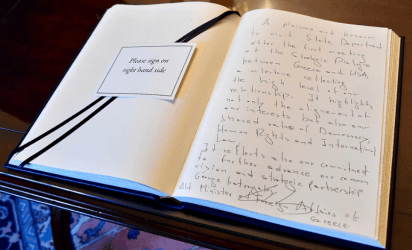 Please sign on
right hand side
A pleasure and honour
to visit State Department
after the first meeting
of the Strategic Dialogue
between Greece and USA,
a milestone reflecting
the high level of our
relationship. It highlights
not only the alignment of
our interests but also our
shared values of Democracy,
Human Rights and International
Law.
It reflects also our commitment
to further advance our common
vision and strategic partnership
George Katrougalos
Alt Minister of Foreign Affairs of
Greece